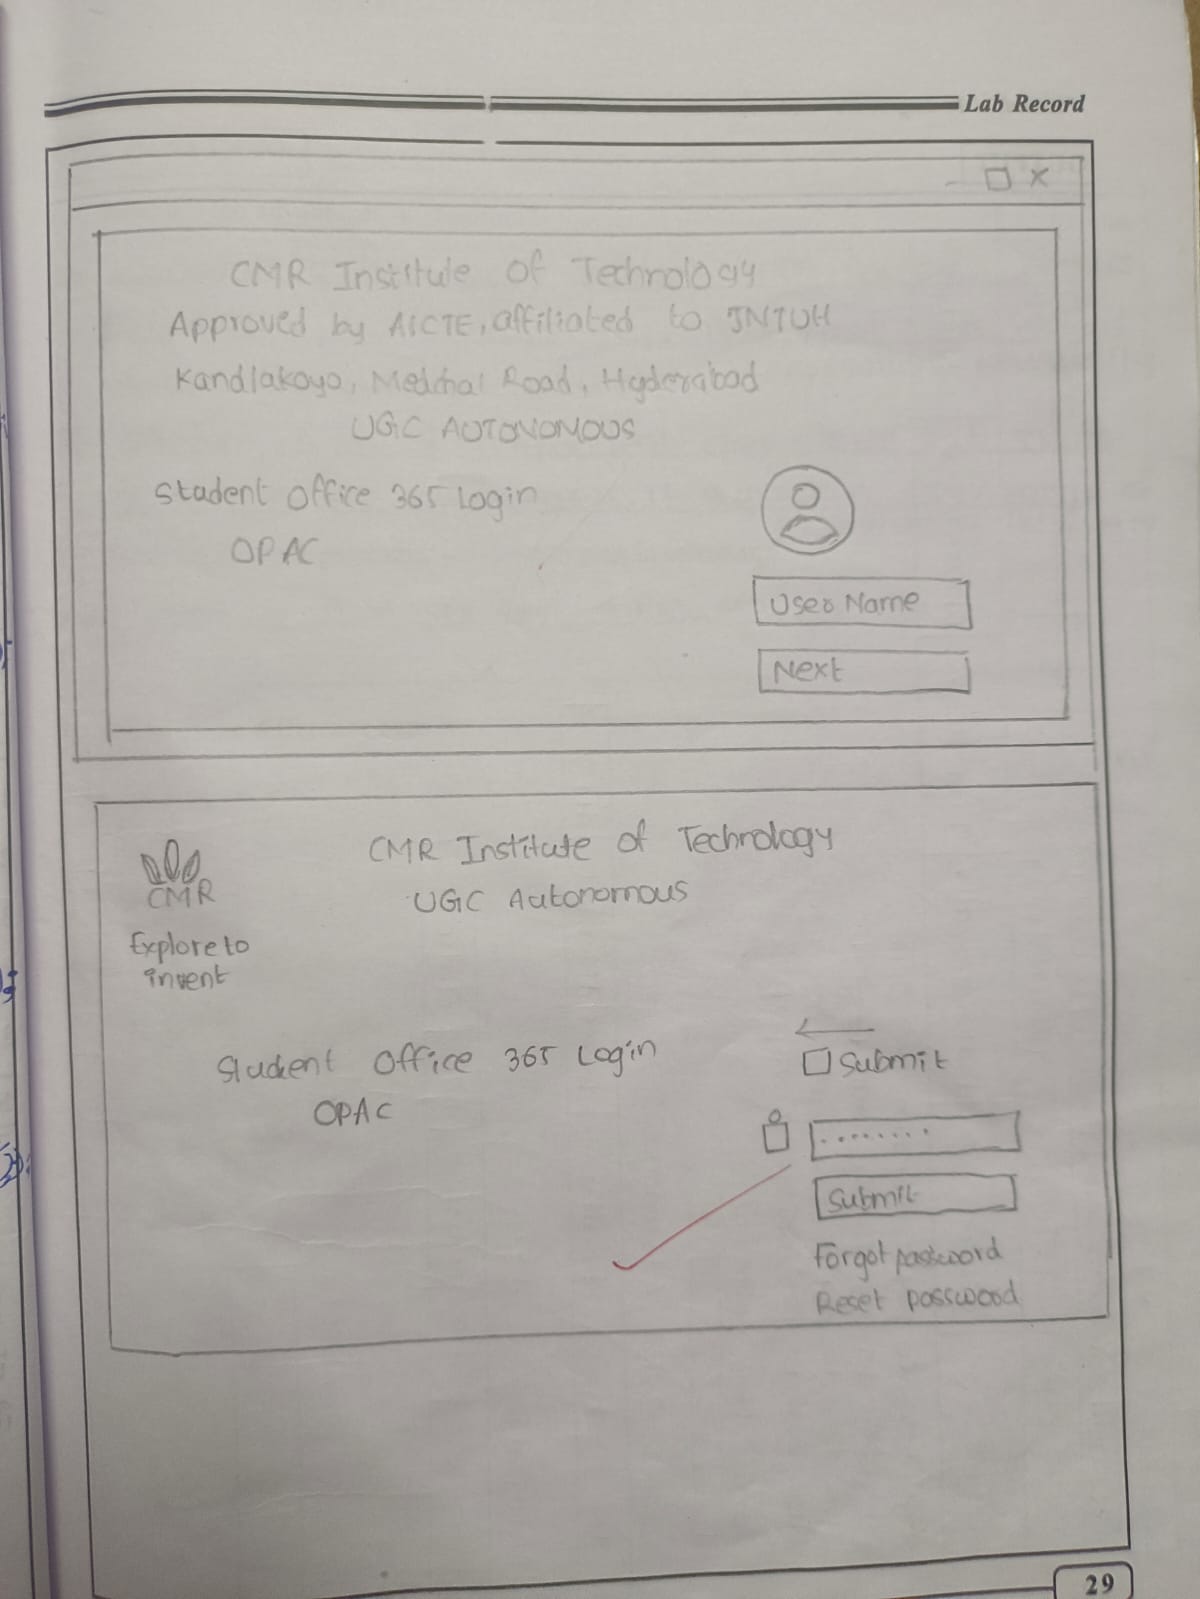 Lab Record
CMR Institute of Technology
Approved by AICTE, affiliated to JNTUH
Kandlakoyo, Medchal Road, Hyderabad
UGC AUTONOMOUS
Student Office 365 Login
OPAC
User Name
Next
CMR Institute of Technology
UGC Autonomous
CMR
Explore to
invent
Student Office 365 Login
OPAC
Submit
Submit
Forgot password
Reset password
29